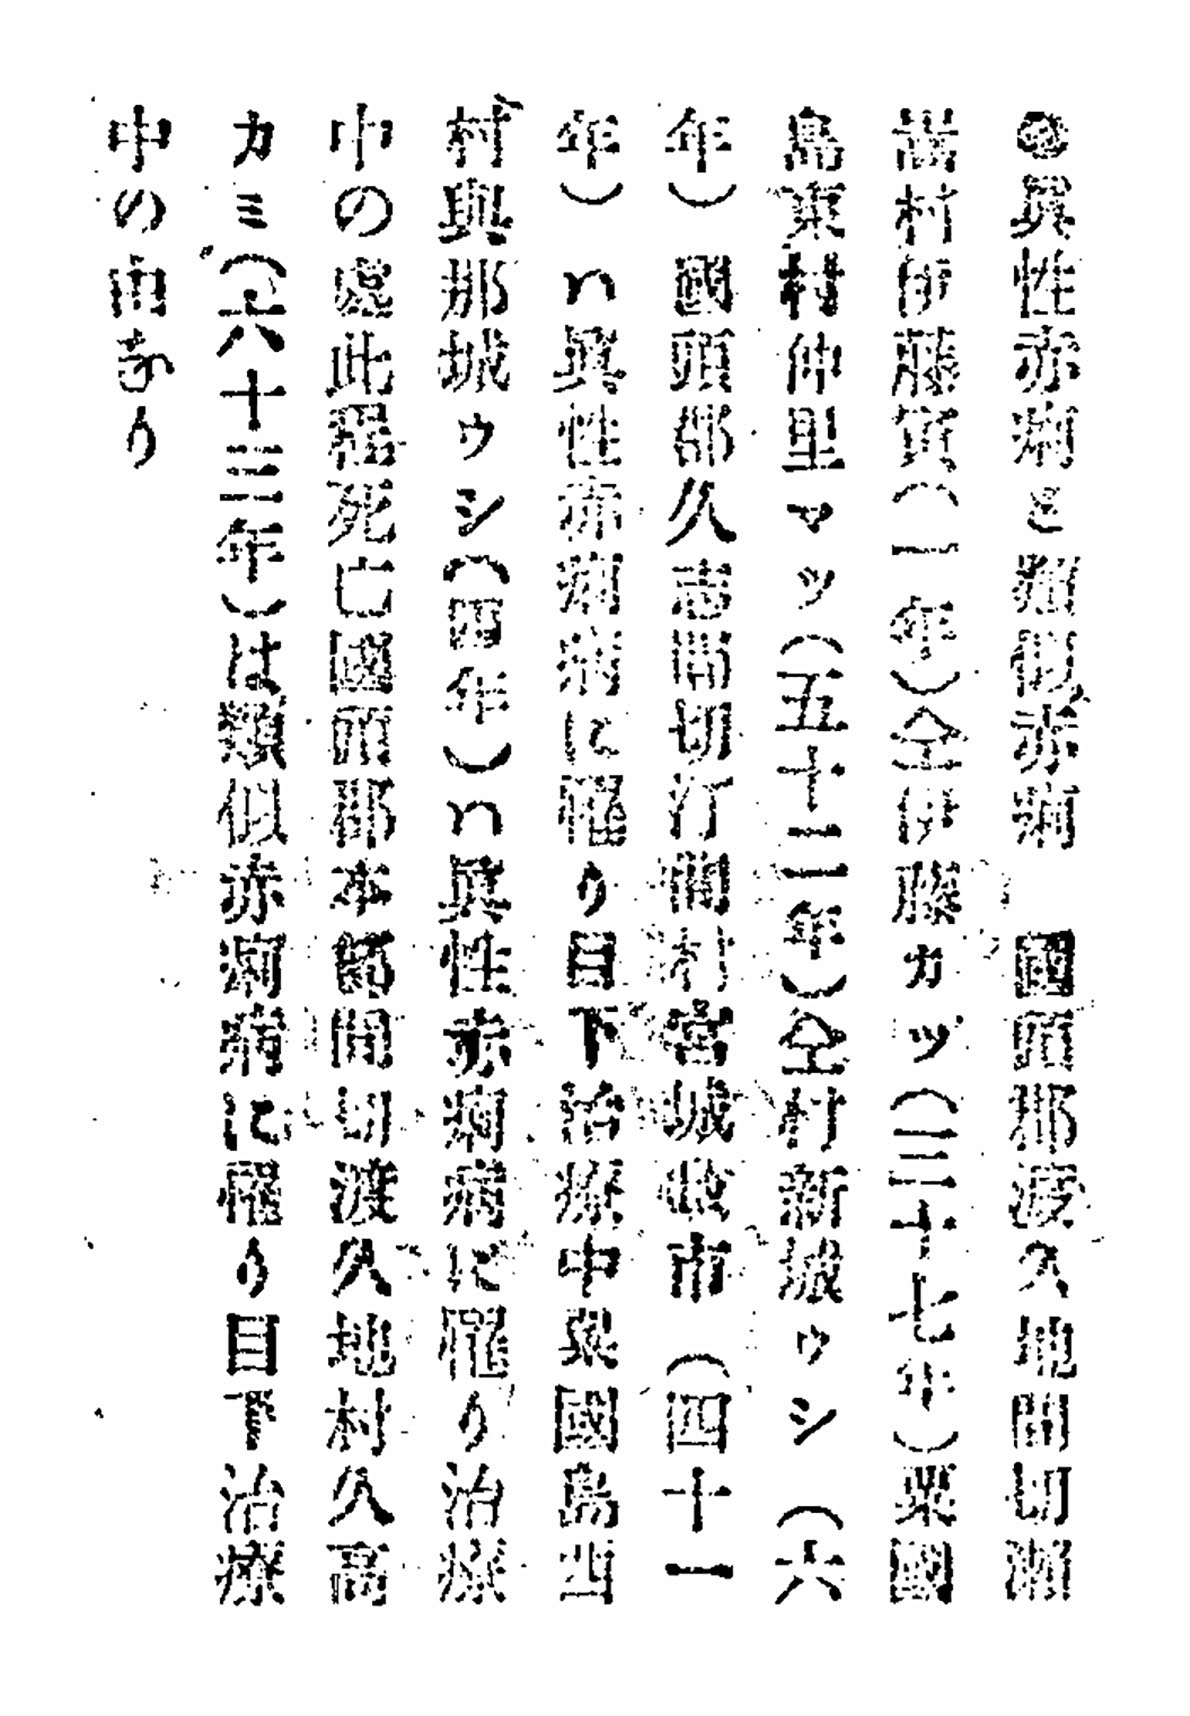 ◉眞性赤痢と類似赤痢　國頭郡渡久地間切瀬
嵩村伊藤寅(一年)仝伊藤カツ(三十七年)粟國
島東村仲里マツ(五十二年)仝村新城ウシ(六
年)國頭郡久志間切汀間村宮城牧市(四十一
年)ハ眞性赤痢病に罹り目下治療中粟國島西
村與那城ウシ(四年)ハ眞性赤痢病に罹り治療
中の處此程死亡國頭郡本部間切渡久地村久高
カミ(六十三年)は類似赤痢病に罹り目下治療
中の由なり